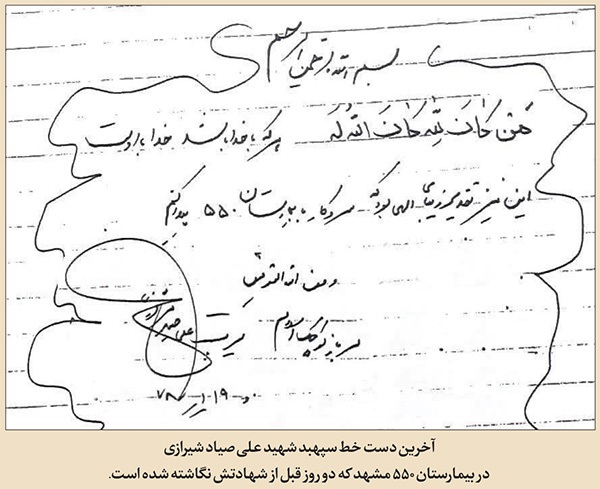 بسم الله الرحمن الرحیم
مَن کَانَ لِلّٰه کَانَ اللهُ لَهُ هرکه باخدا باشد خدا با اوست
این نیز تقدیر زیبای الهی بود که سروکار با بیمارستان ۵۵۰ پیدا کنم
ومن الله التوفیق
سرباز کوچک اسلام سرتیپ علی صیاد شیرازی
۷۸
آخرین دست خط سپهبد شهید علی صیاد شیرازی
در بیمارستان ۵۵۰ مشهد که دو روز قبل از شهادتش نگاشته شده است.